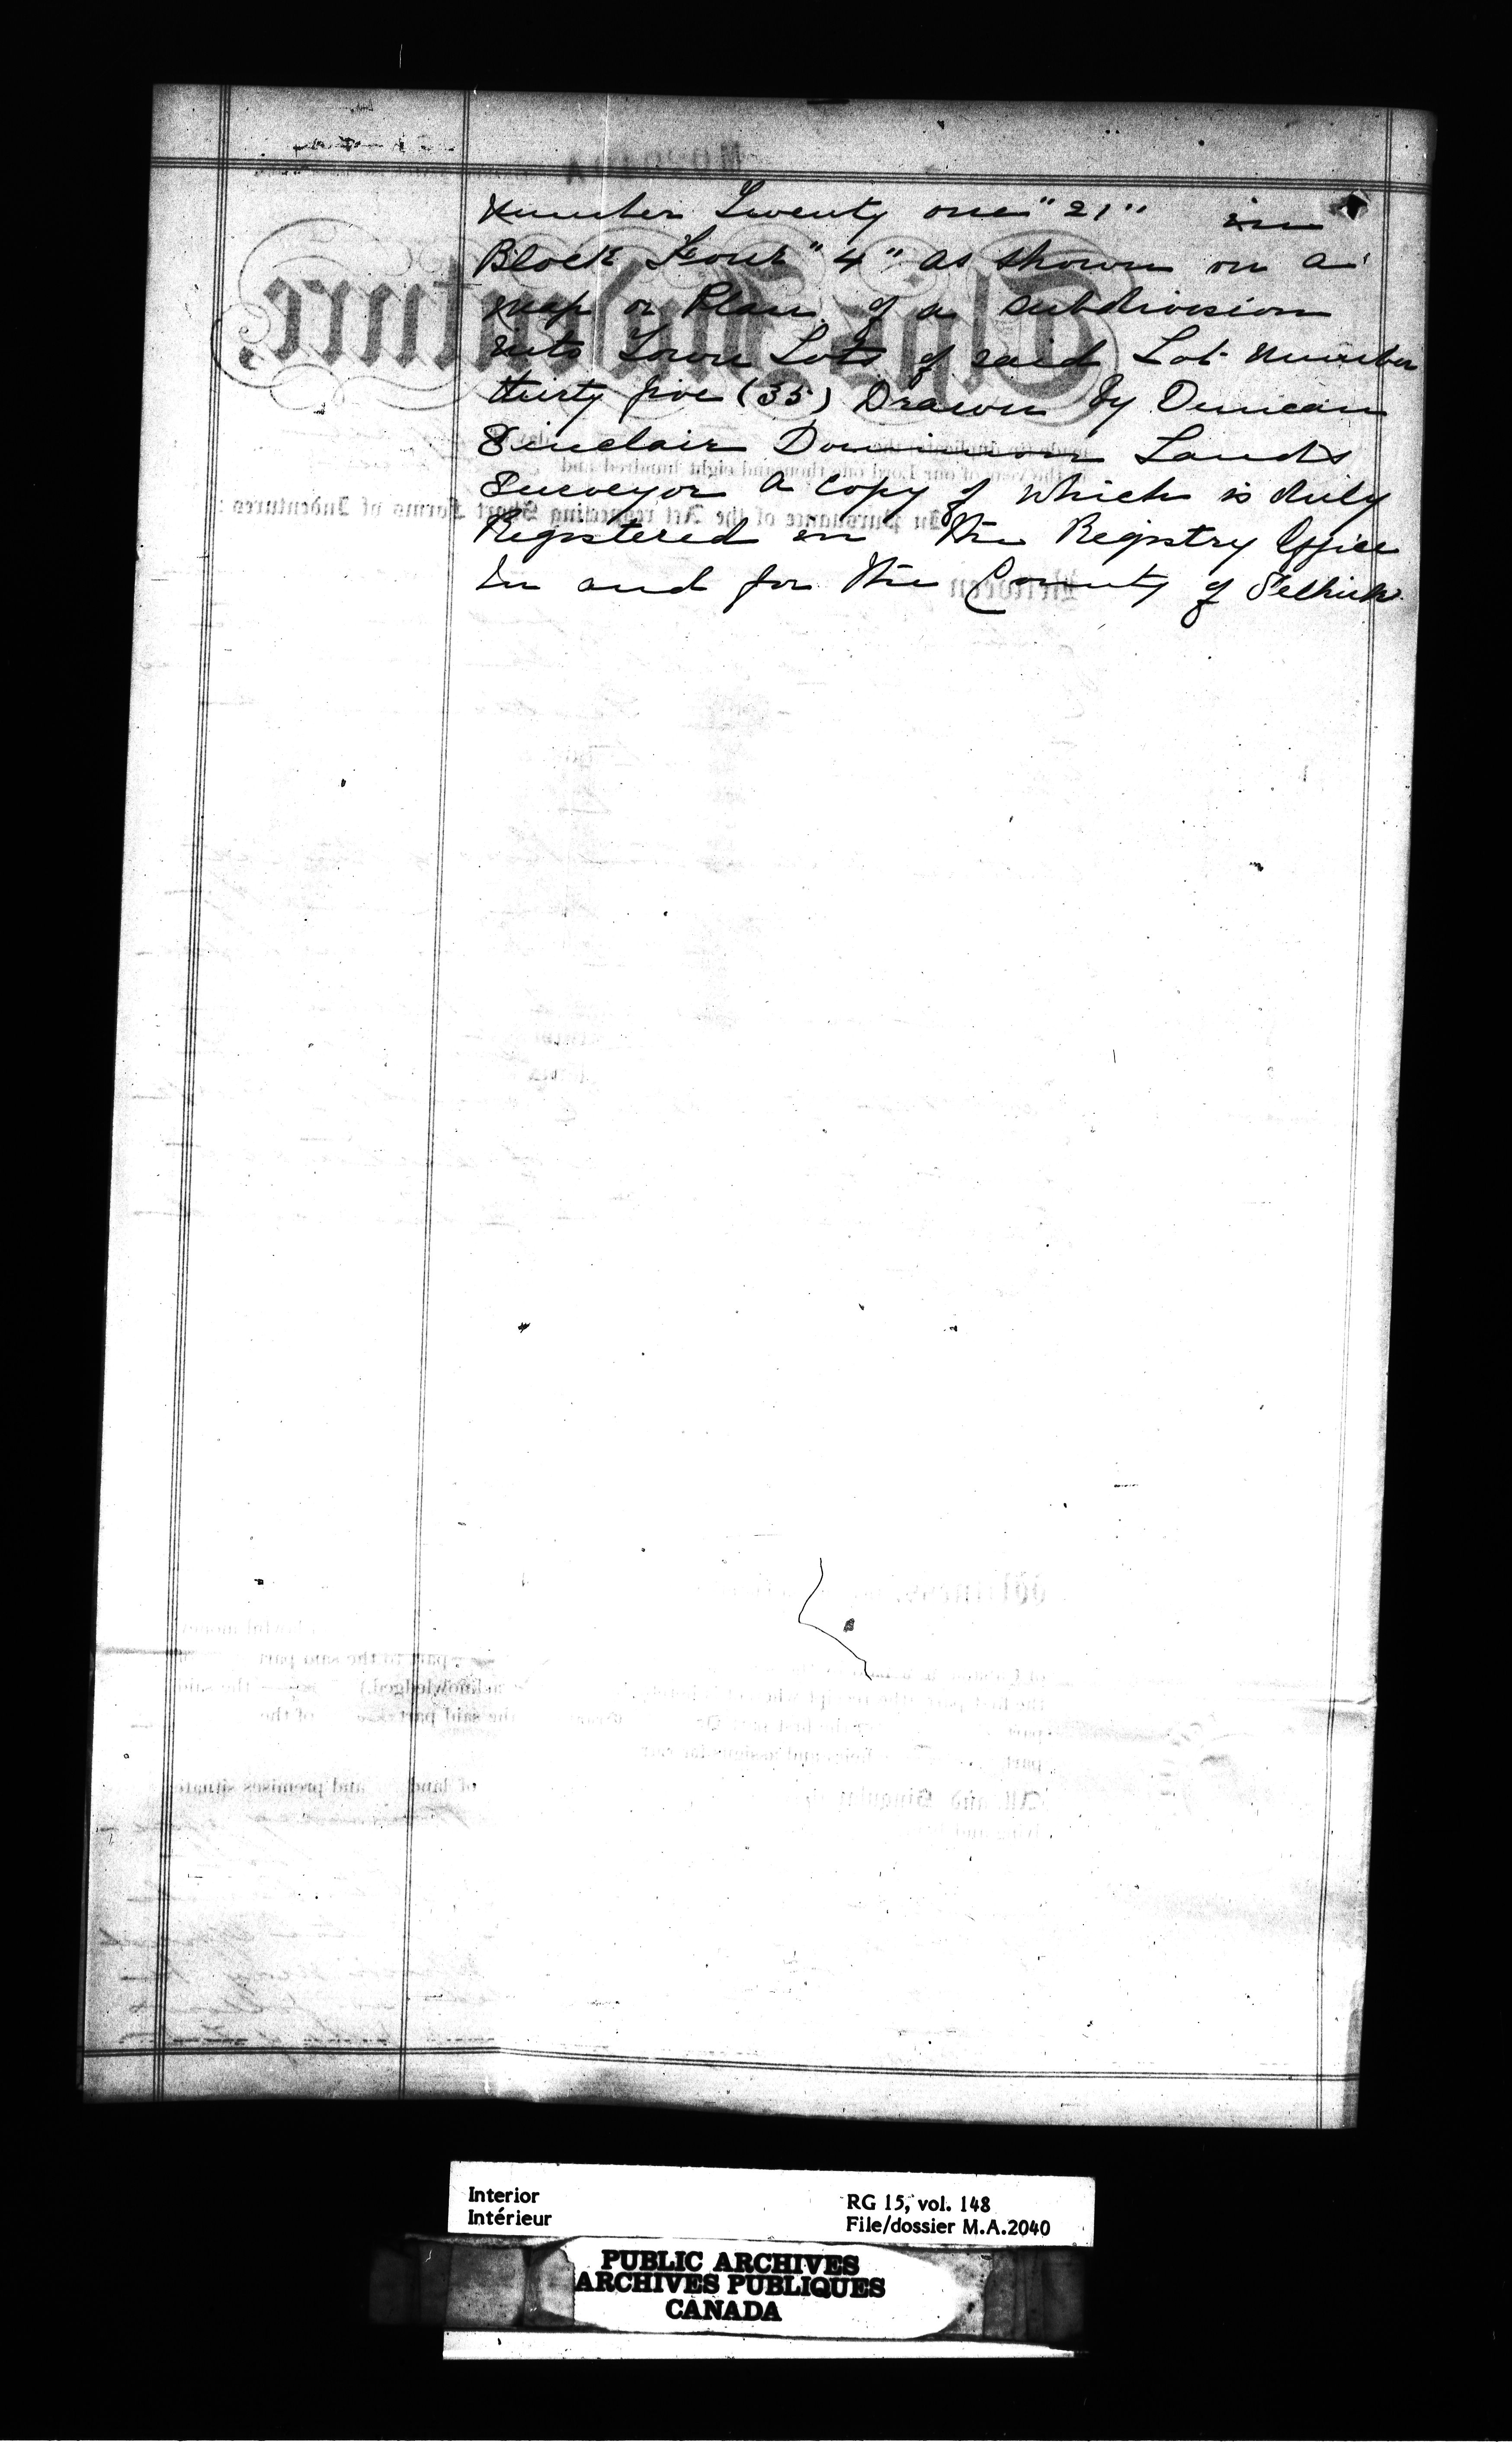 Number Twenty one "21" in
Block Four "4" as shown on a
map or Plan of a subdivision
into Town Lots of said Lot Number
thirty five (35) Drawn by Duncan
Sinclair Dominion Lands
Surveyor a copy of which is duly
Registered in the Registry Office
In and for the County of Selkirk
Interior
Intérieur
RG 15, vol. 148
File/dossier M.A.2040
PUBLIC ARCHIVES
ARCHIVES PUBLIQUES
CANADA